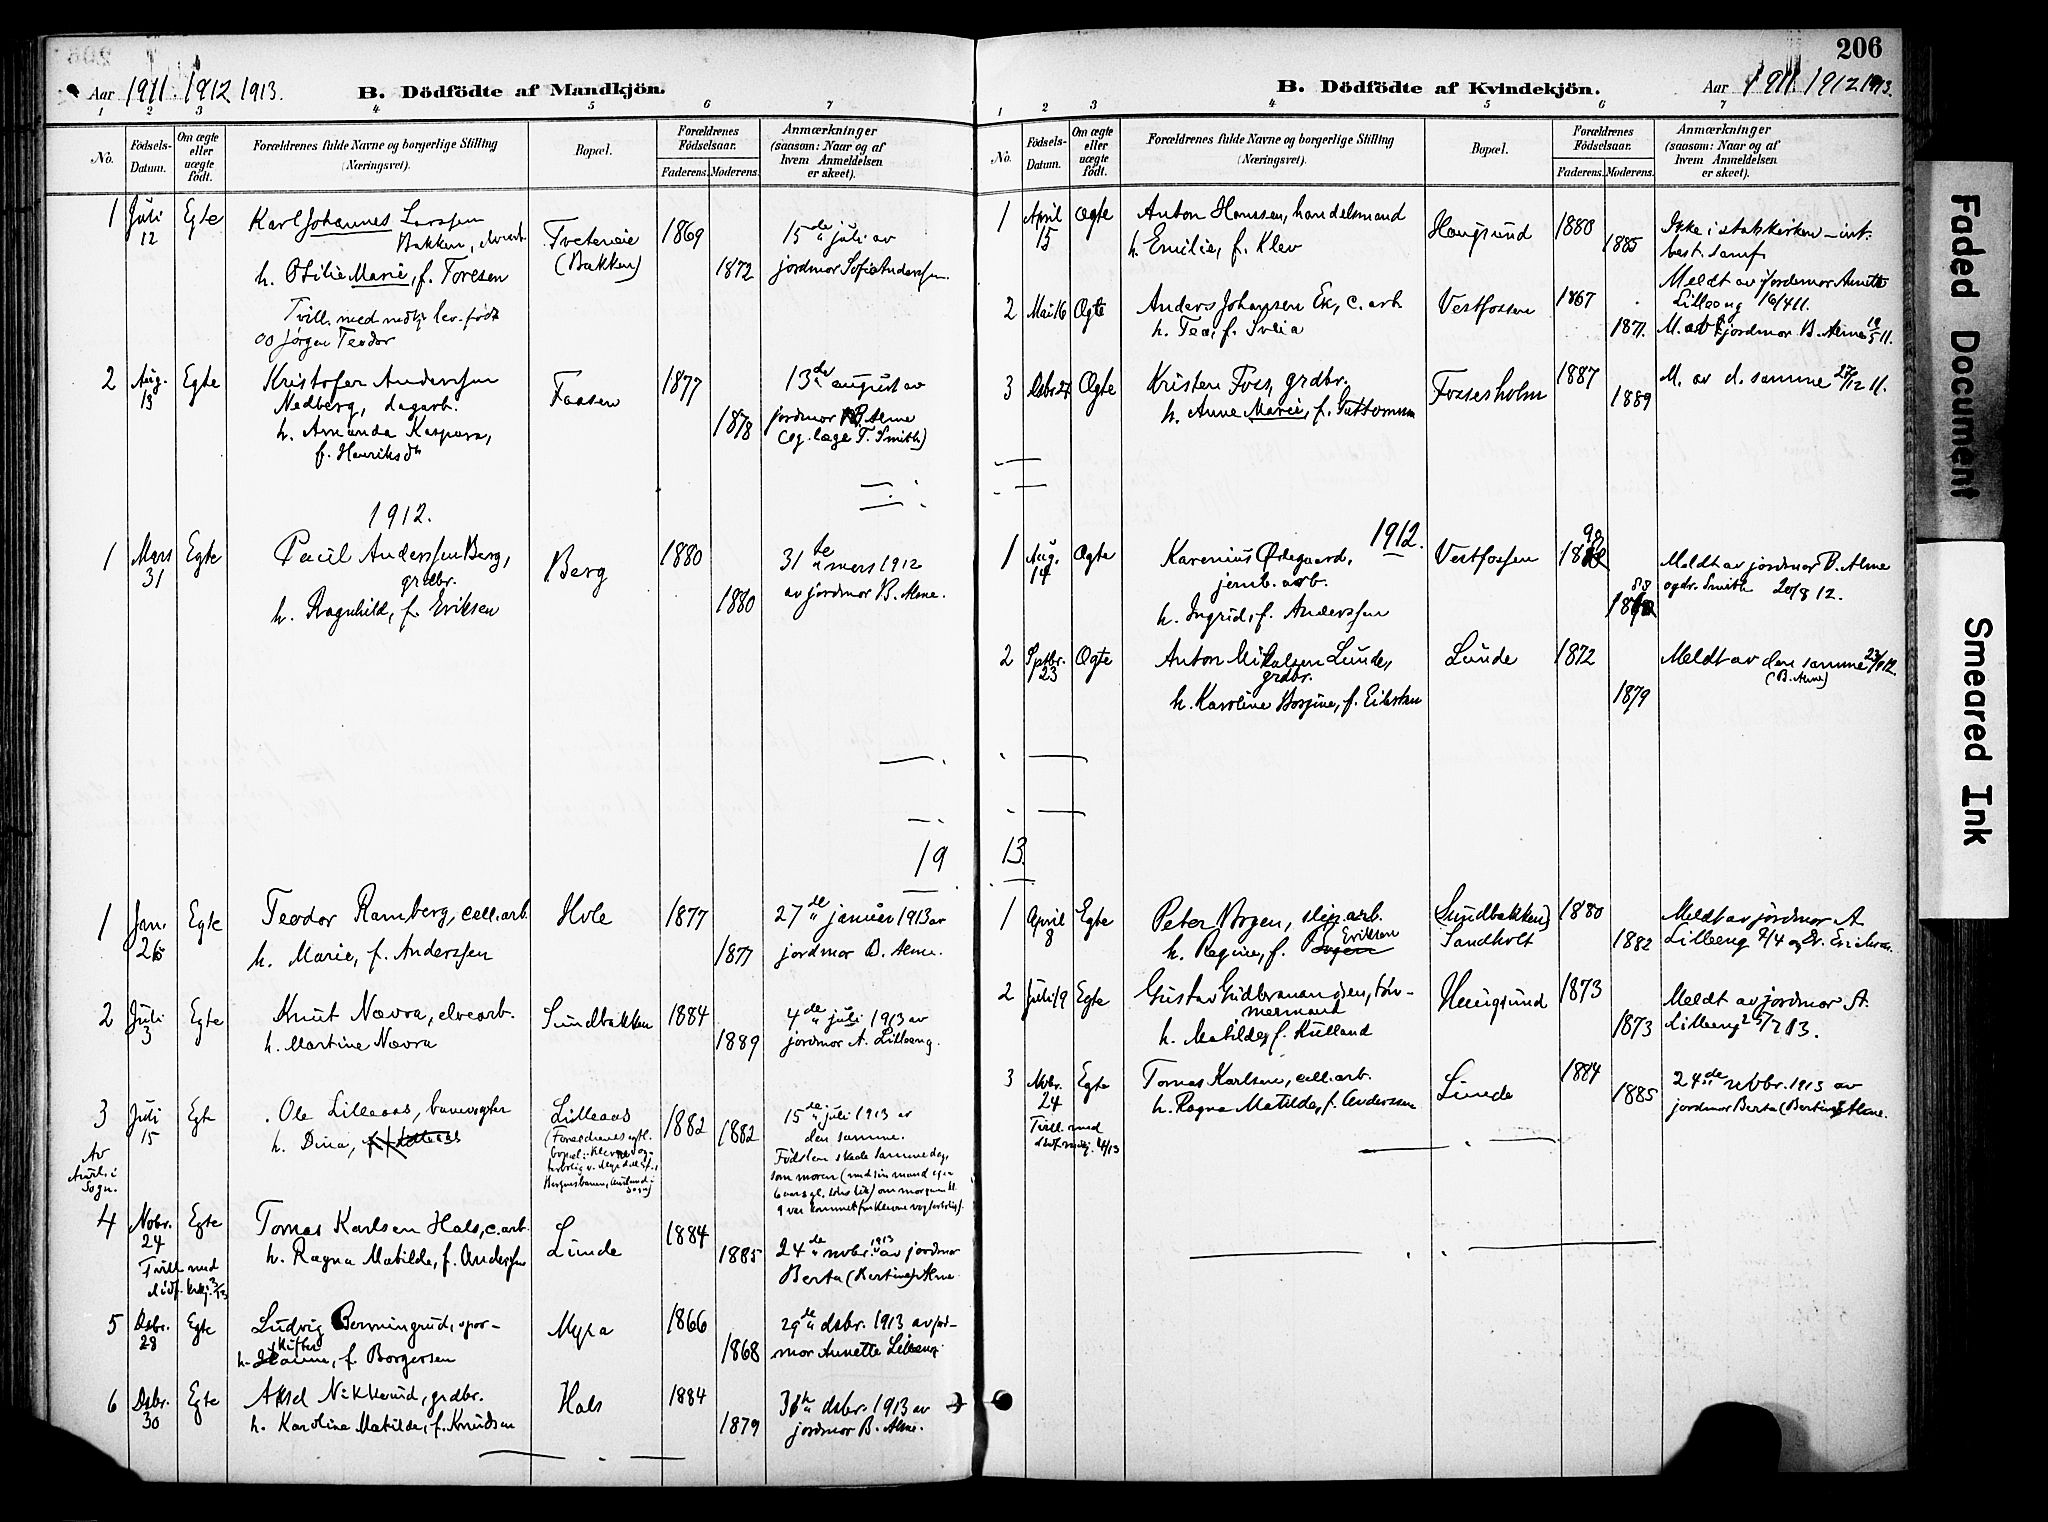 206
Aar 1911. 1912 1913.
B. Dödfödte af Mandkjön.
1 2 3 4 5 6 7
No.
Födsels-Datum.
Om ægte eller uægte født.
Forældrenes fulde Navne og borgerlige Stilling
(Næringsvei).
Bopæl.
Forældrenes Födselsaar.
Faderens. Moderens.
Anmærkninger
(saasom: Naar og af
hvem Anmeldelsen
er skeet).
1 Juli 12 Egte Karl Johannes Larssen
Bakken,
h. Otilie Marie, f. Toresen
Tvill. med lev. født
Jørgen Teodor
(Bakken)
1869 1872
15de juli av
jordmor Sofie Anderssen.
2 Aug. 13 Egte Kristofer Anderssen
Nedberg, dagarb.
h. Amanda Kaspara,
f. Henriksdtr
Faasen
1877 1878
13de august av
jordmor B. Alme
(og læge T. Smith)
1912.
1 Mars 31 Egte Paul Anderssen Berg,
grdbr.
h. Ragnhild, f. Eriksen
Berg
1880 1880
31te mars 1912
av jordmor B. Alme.
19
1 Jan. 26 Egte Teodor Ramberg, cell.arb.
h. Marie, f. Anderssen
Hole
1877 1877
27de januar 1913 av
jordmor B. Alme.
2 Juli 3 Egte Knut Nævra, elvearb.
h. Martine Nævra
Sundbakken
1884 1889
4de juli 1913 av
jordmor A. Lilleeng.
3 Juli 15 Egte Ole Lilleaas, banevogter
h. Dina,
Av
Sogn.
Lilleaas
1882 1882
15de juli 1913 av
den samme.
Fødslen skede samme dag,
som moren
4 Nobr. 24 Egte Tomas Karlsen Hals, c.arb.
h. Ragna Matilde, f. Anderssen
Tvill. med
Lunde
1884 1885
24de nobr. 1913 av jordmor
Berta (Bertine) Alme
5 Dsbr. 28 Egte Ludvig Bermingrud, spor-
skifter
h. Hanne, f. Borgersen
Myra
1866 1868
29de dsbr. 1913 av jord-
mor Annette Lilleeng
6 Dsbr. 30 Egte Aksel Nikkerud, grdbr.
h. Karoline Matilde, f. Knudsen
Hals
1884 1879
dsbr. 1913 av
jordmor B. Alme.
B. Dödfödte af Kvindekjön.
Aar 1911. 1912 1913.
1 2 3 4 5 6 7
No.
Födsels-Datum.
Om ægte eller uægte födt.
Forældrenes fulde Navne og borgerlige Stilling
(Næringsvei).
Bopæl.
Forældrenes Födselsaar.
Faderens. Moderens.
Anmærkninger
(saasom: Naar og af
hvem Anmeldelsen
er skeet).
1 April 15 Ogte Anton Hanssen, handelsmand
h. Emilie, f. Klev
Haugsund
1880 1885
Ikke i statskirken –
Meldt av jordmor Annette
Lilleeng 16/4 11.
2 Mai 16 Ogte Anders Johansen Ek, c. arb
h. Tea, f. Sveia
Vestfossen
1867 1871.
M. av jordmor B. Alme 19/5 11.
3 Dsbr 27 Ogte Kristen Foss, grdbr.
h. Anne Marie, f. Guttormsen
Fossesholm
1887 1889
M. av d. samme 28/12 11.
1912.
1 Aug. 14 Ogte Karenius Ødegaard,
jernb. arb.
h. Ingrid, f. Anderssen
Vestfossen
Meldt av jordmor B. Alme
og dr. Smith 20/8 12.
2 Sptbr. 23 Ogte Anton Mikalsen Lunde,
grdbr.
h. Karoline Borgine, f. Eikstren
Lunde
1872 1879
Meldt av den samme
(B. Alme)
13.
1 April 8 Egte Peter Bogen, slip.arb.
h. Regine, f. Eriksen
(Sundbakken)
Sandholt
1880 1882
Meldt av jordmor A.
Lilleeng 9/4 og Dr. Erichsen
2 Juli 19 Egte Gustav Gudbrandsen, tøm-
mermand
h. Matilde, f. Kulland
Haugsund
1873 1873
Meldt av jordmor A.
Lilleeng
3 Nvbr. 24 Egte Tomas Karlsen, cell.arb.
h. Ragna Matilde, f. Anderssen
Tvill. med
Lunde
1884 1885
24de nvbr. 1913 av
jordmor Berta (Bertine) Alme.
Faded Document
Smeared Ink